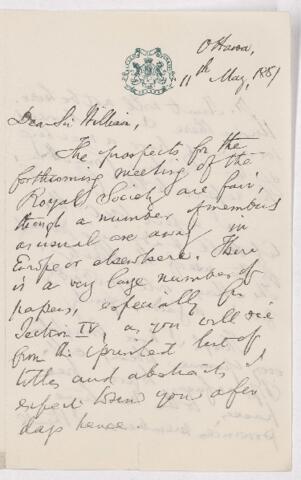 Ottawa,
11th May, 1889
Dear Sir William,
The prospects for the
forthcoming meeting of the
Royal Society are fair,
though a number of members
as usual are away in
Europe or elsewhere. There
is a very large number of
papers, especially for
Section IV, as you will see
from the printed list of
titles and abstracts I
expect to send you a few
days hence.